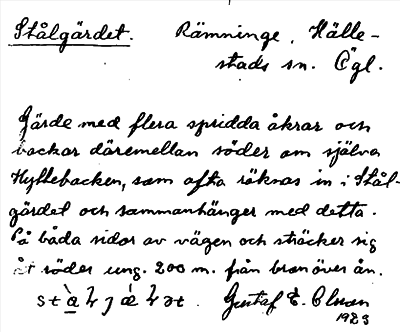 Stålgärdet. Rämninge, Hälle-
stads sn. Ögl.
Gärde med flera spridda åkrar och
backar däremellan söder om själva
Hyttebacken, som ofta räknas in i Stål-
gärdet och sammanhänger med detta.
På båda sidor av vägen och sträcker sig
åt söder ung. 200 m. från bron över ån.
Gustaf E. Olsson
1923